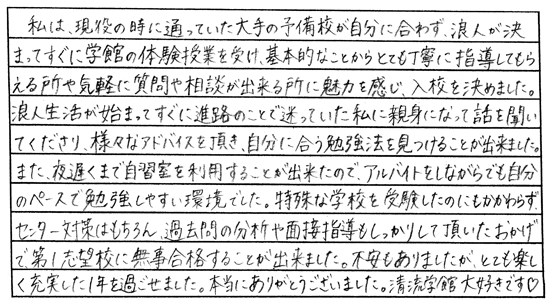 私は、現役の時に通っていた大手の予備校が自分に合わず、浪人が決
まってすぐに学館の体験授業を受け、基本的なことからとても丁寧に指導してもら
える所や気軽に質問や相談が出来る所に魅力を感じ、入校を決めました。
浪人生活が始まってすぐに進路のことで迷っていた私に親身になって話を聞い
てくださり、様々なアドバイスを頂き、自分に合う勉強法を見つけることが出来ました。
また、夜遅くまで自習室を利用することが出来たので、アルバイトをしながらでも自分
のペースで勉強しやすい環境でした。特殊な学校を受験したのにもかかわらず、
センター対策はもちろん、過去問の分析や面接指導もしっかりして頂いたおかげ
で、第1志望校に無事合格することが出来ました。不安もありましたが、とても楽し
く充実した1年を過ごせました。本当にありがとうございました。清流学館大好きです♡